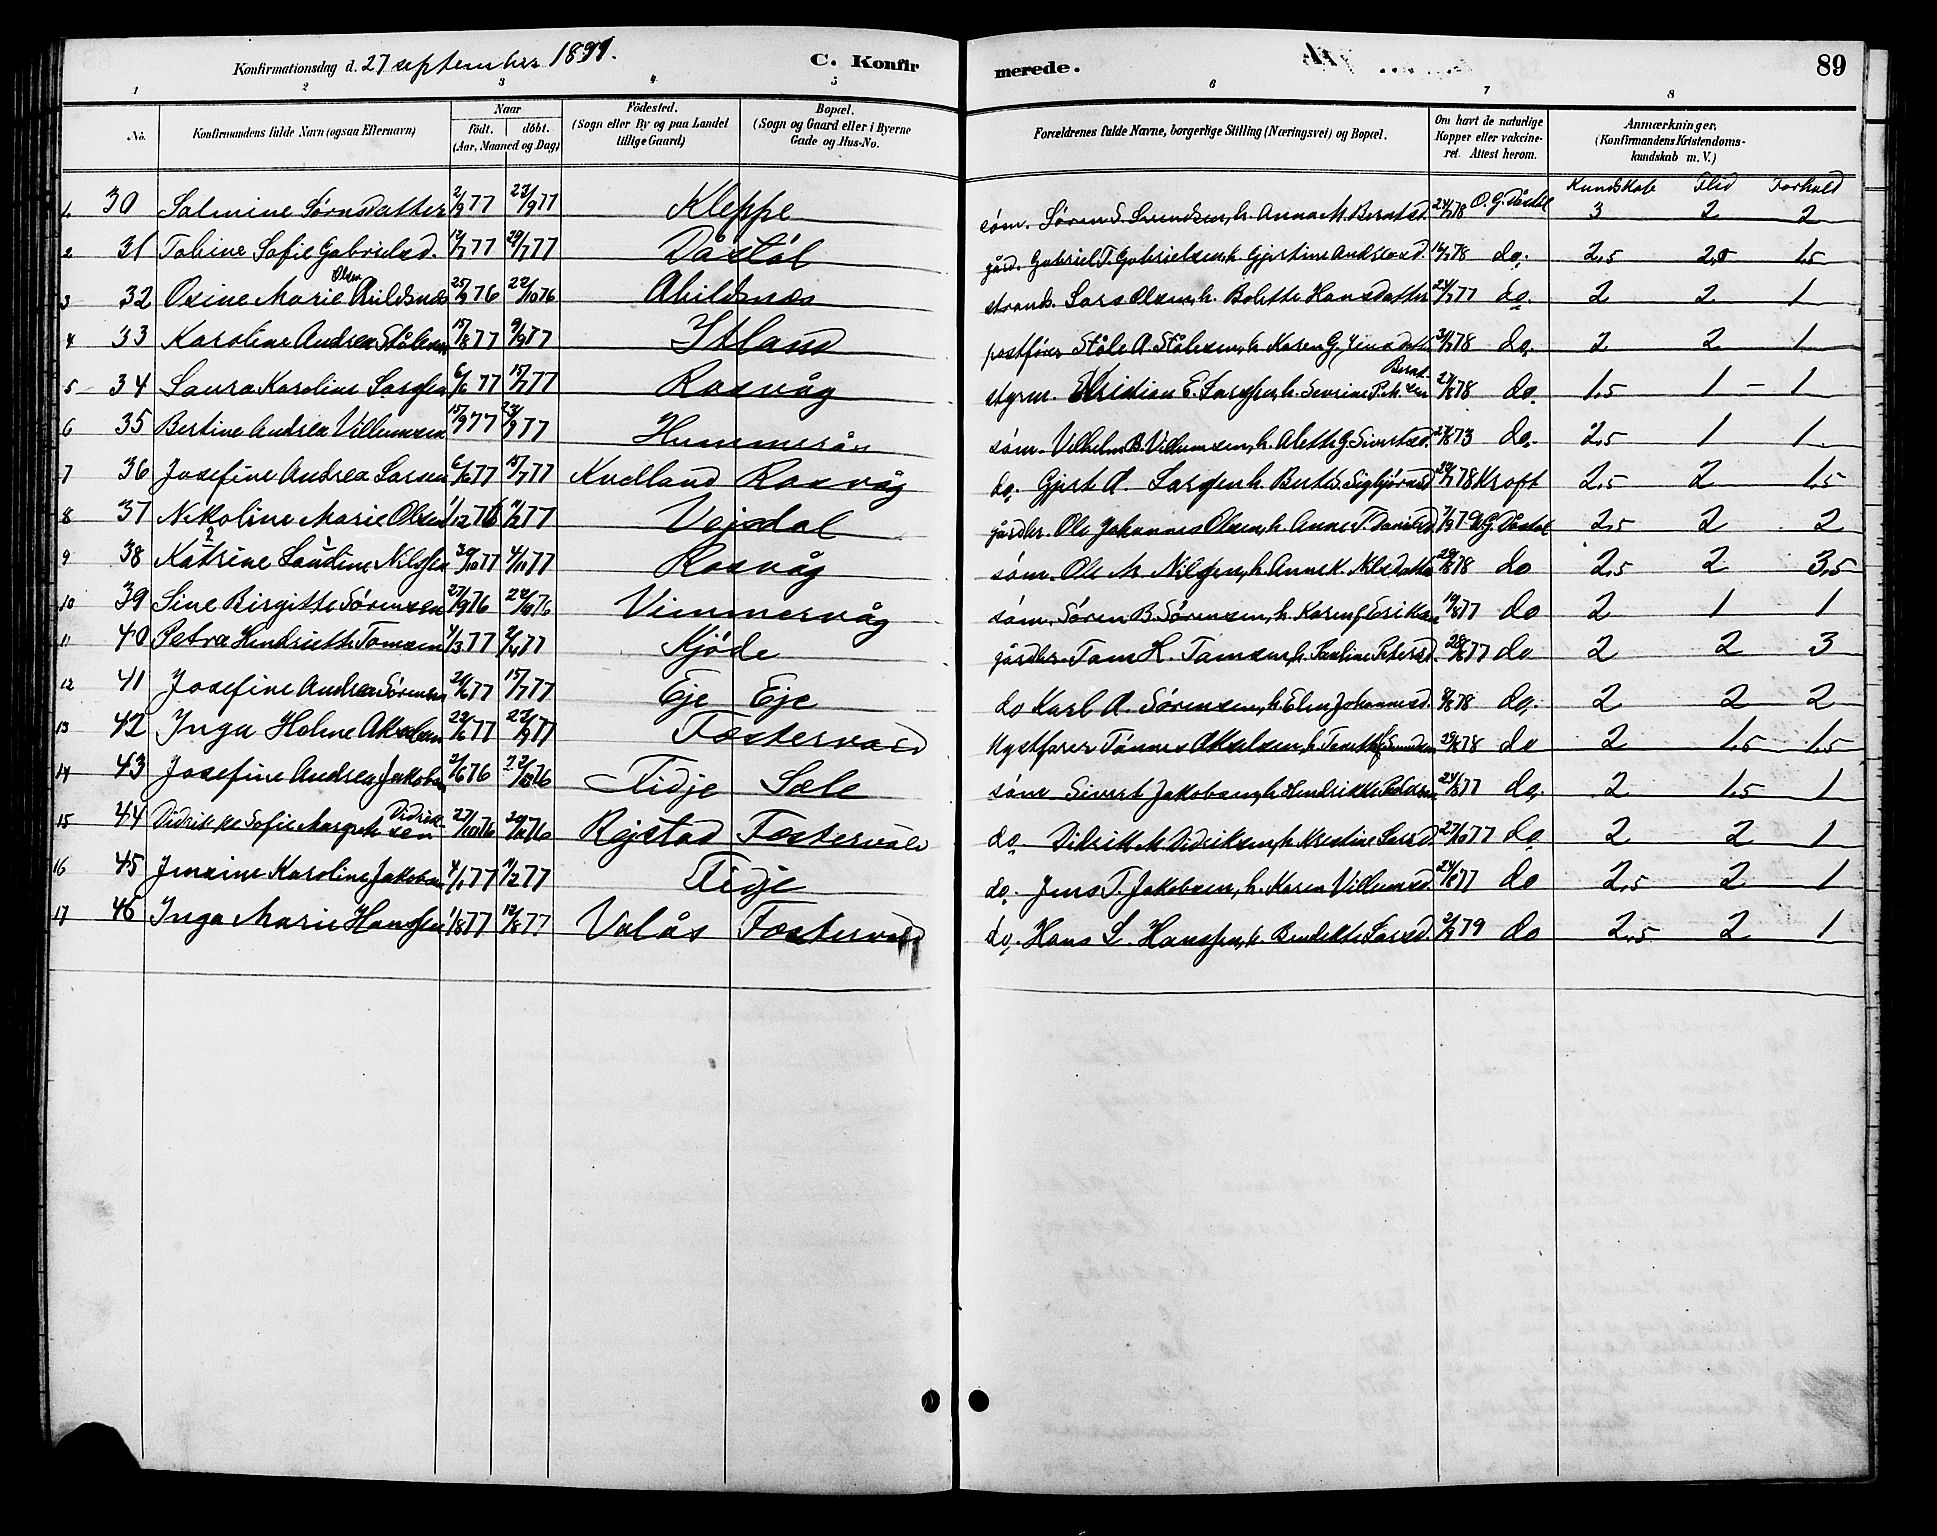 Konfirmationsdag d. 27 september 1891. C. Konfir merede. 89
1 2 3 4 5 6 7 8
No. Konfirmandens fulde Navn (ogsaa Efternavn) Naar födt. döbt. (Aar, Maaned og Dag) Födested. (Sogn eller By og paa Landet tillige Gaard) Bopæl. (Sogn og Gaard eller i Byerne Gade og Hus-No. Forældrenes fulde Navne, borgerlige Stilling (Næringsvei) og Bopæl. Om havt de naturlige Kopper eller vakcineret. Attest herom. Anmærkninger. (Konfirmandens Kristendomskundskab m. V.)
Kundskab Flid Forhold
1 30 Salmine Sørnsdatter 2/9 77 23/9 77 Kleppe søm. Søren S. Svendsen, h. Anna M. Berntsd. 24/7 78 O. G. Dåstøl 3 2 2
2 31 Tobine Sofie Gabrielsd. 12/7 77 29/7 77 Dåstøl gård. Gabriel T. Gabrielsen, h. Gjertine Andreasd. 16/7 78 do. 2,5 2,0 1,5
3 32 Osine Marie Olsen Ahildsnæs 25/9 76 22/10 76 Ahildsnæs strands. Lars Olsen, h. Bolette Hansdatter 24/7 77 do. 2 2 1
4 33 Karoline Andrea Stålesen 15/8 77 9/9 77 Itland postfører Ståle A. Stålesen, h. Karen G. 31/7 78 do. 2 2 1
5 34 Laura Karoline Larssen 6/6 77 15/7 77 Rosvåg styrm. Kristian E. Larssen, h. Sevrine P. M. Berntsen 27/8 78 do. 1,5 1 - 1
6 35 Bertine Andrea Villumsen 15/9 77 23/9 77 Hummerån søm. Vilhelm B. Villumsen, h. Alette G. Sivertsd. 73 do. 2,5 1 1.
7 36 Josefine Andrea Larsen 6/6 77 15/7 77 Kvelland Rosvåg do. Gjert A. Larssen h. Berte S. Sigbjørnsd 78 Kroft 2,5 2 1,5
8 37 Nikoline Marie Olsen 1/12 76 11/2 77 Vejsdal gårdbr. Ole Johannes Olsen, h. Anne T. Danielsd. 79 O. G. Dåstøl 2,5 2 2
9 38 Katrine Landine Nilssen 30/10 77 4/11 77 Rosvåg søm. Ole M. Nilssen, h. Anne K. Nilsdatter 78 do 2,5 2 3,5
10 39 Sine Birgitte Sørensen 27/9 76 22/10 76 Vimmervåg søm. Søren B. Sørensen, h. Karen G. 19/8 77 do 2 1 1
11 40 Petra Hendriette Tomsen 4/3 77 2/4 77 Kjøde gårdbr. Tom H. Tomsen, h. Pauline Petersd. 28/8 77 do 2 2 3
12 41 Josefine Andrea Sørensen 20/6 77 15/7 77 Eje Eje do Karl A. Sørensen, h. Elen Johannesd. 78 do. 2 2 2
13 42 Inga Helene Akselsen 22/6 77 22/7 77 Fostervold Kystfarer Tønnes Akselsen, h. 29/8 78 do 2 1,5 1,5
14 43 Josefine Andrea Jakobsen 2/6 76 22/10 76 Tidje Sele søm Sivert Jakobsen, h. Hendrikke Pedersen 24/8 77 do. 2 1,5 1
15 44 Didrikke Sofie Margrete Didriksen 27/10 76 29/10 76 Rejstad Fostervold do. Didrik M. Didriksen, h. Kristine Larsd. 27/10 77 do 2 2 1
16 45 Jensine Karoline Jakobsen 4/1 77 11/2 77 Tidje do. Jens T. Jakobsen, h. Karen Villumsd. 24/8 77 do 2,5 2 1
17 46 Inga Marie Hanssen 1/8 77 12/8 77 Valås Fostervold do. Hans L. Hanssen, h. Bendikte Larsd. 79 do 2,5 2 1